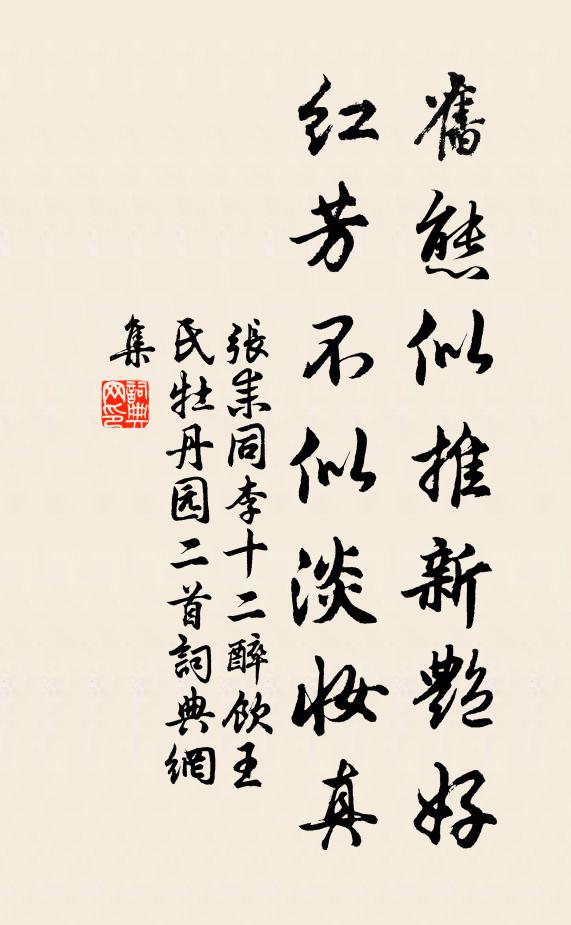 舊態似推新艷好
紅芳不似淡妝真
張耒同李十二醉飲王
氏牡丹园二首詞典網
集
詞典
网印